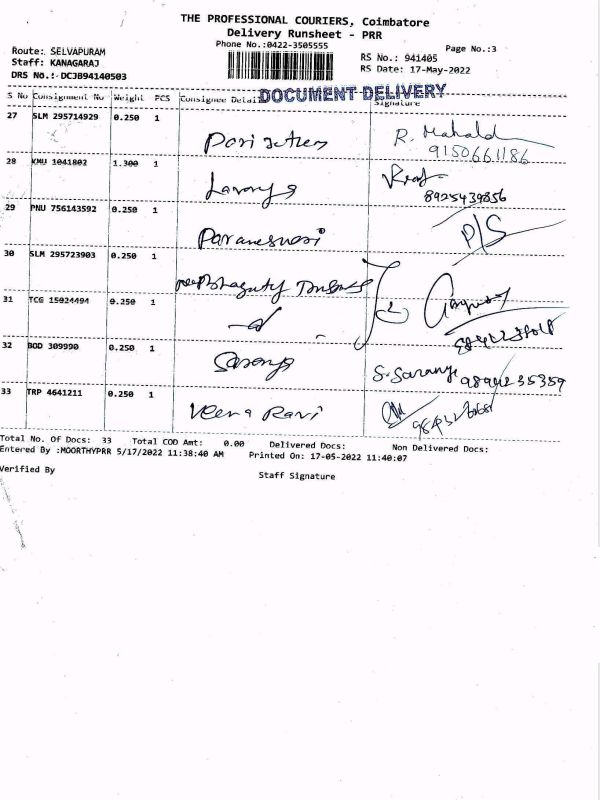 THE PROFESSIONAL COURIERS, Coimbatore
Delivery Runsheet - PRR
Phone No.:0422-3505555
Page No.:3
Route: SELVAPURAM
Staff: KANAGARAJ
DRS No.:-DCJB94140503
RS No.: 941405
RS Date: 17-May-2022
DOCUMENT DELIVERY
S No Consignment No Weight PCS Consignee Details Signature
27 SLM 295714929 0.250 1 R. Mahald
9150661186
28 KMU 1041802 1.300 1 Lavanya
8925439856
29 PNU 756143592 0.250 1 Paraneswari P/S
30 SLM 295723903 0.250 1
31 TCG 15024494 0.250 1
32 BOD 309990 0.250 1 Saranya S. Saranya 9894235359
33 TRP 4641211 0.250 1 Veena Ravi
Total No. Of Docs: 33 Total COD Amt: 0.00 Delivered Docs: Non Delivered Docs:
Entered By :MOORTHYPRR 5/17/2022 11:38:40 AM Printed On: 17-05-2022 11:40:07
Verified By Staff Signature